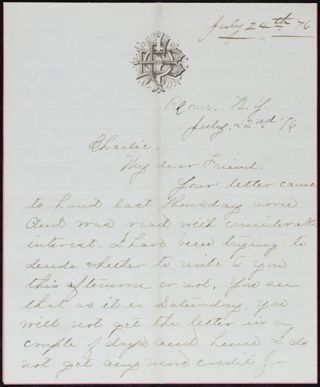 July 24th 76
Rome. N.Y.
July. 22nd /76
Charlie.
My dear Friend.
Your letter came
to hand last Thursday noon
And was read with considerable
interest. I have been trying to
decide whether to write to you
this afternoon or not. You see
that as it is Saturday. You
will not get the letter in a
couple of days and hence I do
not get any more credit for